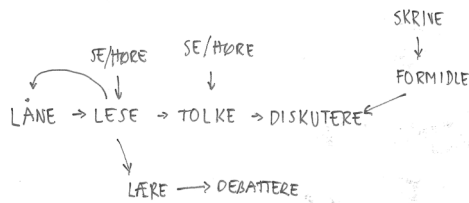 SKRIVE
SE/HØRE SE/HØRE
FORMIDLE
LÅNE → LESE → TOLKE → DISKUTERE
LÆRE → DEBATTERE